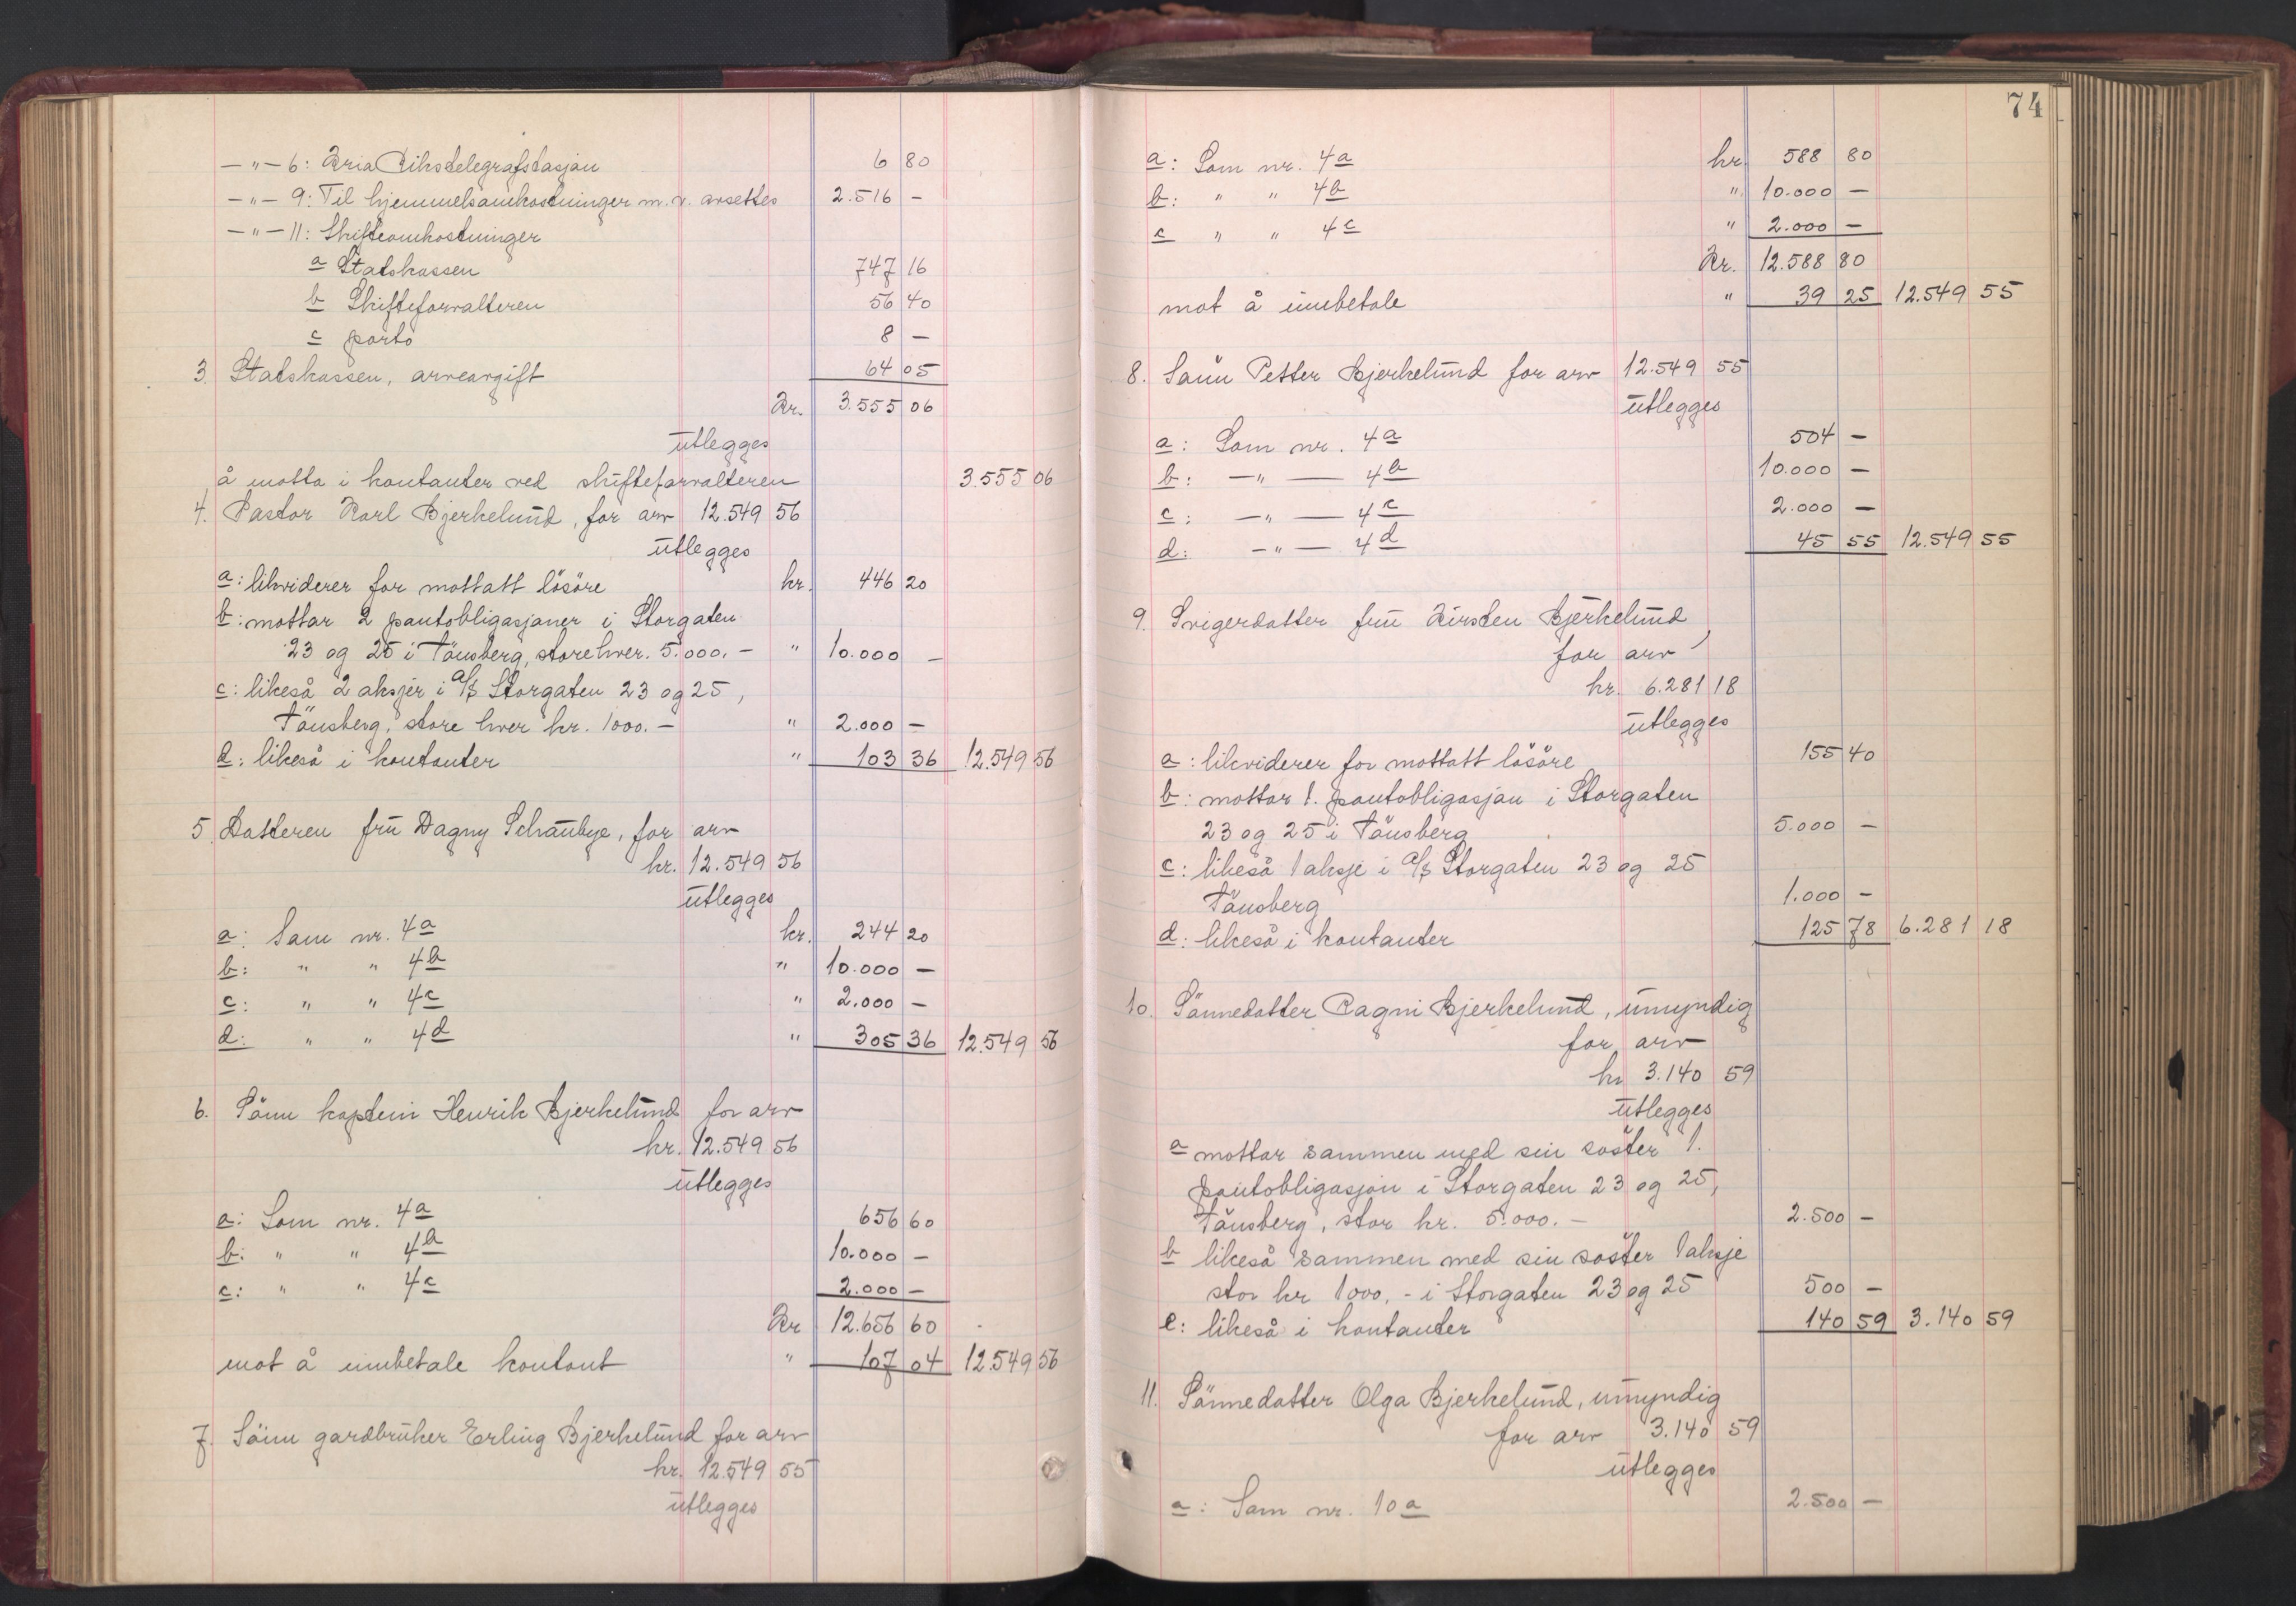 — " — 6: Kria Rikstelegrafstasjon 6 80
— " — 9: Til hjemmelsomkostninger m.v. avsettes 2.516 —
— " — 11: Skifteomkostninger
a Statskassen 747 16
b Skifteforvalteren 56 40
c porto 8 —
3. Statskassen, arveavgift 64 05
Kr. 3.555 06
utlegges
å motta i kontanter ved skifteforvalteren 3.555 06
4. Pastor Karl Bjerkelund, for arv 12.549 56
utlegges
a: likviderer for mottatt lösöre kr. 446 20
b: mottar 2 pantobligasjoner i Storgaten
23 og 25 i Tönsberg, store hver. 5.000.— " 10.000 —
c: likeså 2 aksjer i A/S Storgaten 23 og 25,
Tönsberg, store hver kr. 1000.— " 2.000 —
d: likeså i kontanter " 103 36 12.549 56
5. Datteren fru Dagny Schaubye, for arv
kr. 12.549 56
utlegges
a: Som nr. 4a kr. 244 20
b: " " 4b " 10.000 —
c: " " 4c " 2.000 —
d: " " 4d " 305 36 12.549 56
6. Sönn kaptein Henrik Bjerkelund for arv
kr. 12.549 56
utlegges
a: Som nr. 4a 656 60
b: " " 4b 10.000 —
c: " " 4c 2.000 —
Kr 12.656 60
mot å innbetale kontant " 107 04 12.549 56
7. Sönn gardbruker Erling Bjerkelund for arv
kr. 12.549 55
utlegges
74
a: Som nr. 4a kr. 588 80
b: " " 4b " 10.000 —
c " " 4c " 2.000 —
Kr. 12.588 80
mot å innbetale " 39 25 12.549 55
8. Sönn Petter Bjerkelund for arv 12.549 55
utlegges
a: Som nr. 4a 504 —
b: — " — 4b 10.000 —
c: — " — 4c 2.000 —
d: — " — 4d 45 55 12.549 55
9. Svigerdatter fru Kirsten Bjerkelund,
for arv
kr. 6.281 18
utlegges
a: likviderer for mottatt lösöre 155 40
b: mottar 1. pantobligasjon i Storgaten
23 og 25 i Tönsberg 5.000 —
c: likeså 1 aksje i A/S Storgaten 23 og 25
Tönsberg 1.000 —
d: likeså i kontanter 125 78 6.281 18
10. Sönnedatter Ragni Bjerkelund, umyndig
for arv
kr 3.140 59
utlegges
a mottar sammen med sin söster 1.
pantobligasjon i Storgaten 23 og 25,
Tönsberg, stor kr. 5.000.— 2.500 —
b likeså sammen med sin söster 1 aksje
stor kr 1000.- i Storgaten 23 og 25 500 —
c: likeså i kontanter 140 59 3.140 59
11. Sönnedatter Olga Bjerkelund, umyndig
for arv 3.140 59
utlegges
a: Som nr. 10a 2.500 —